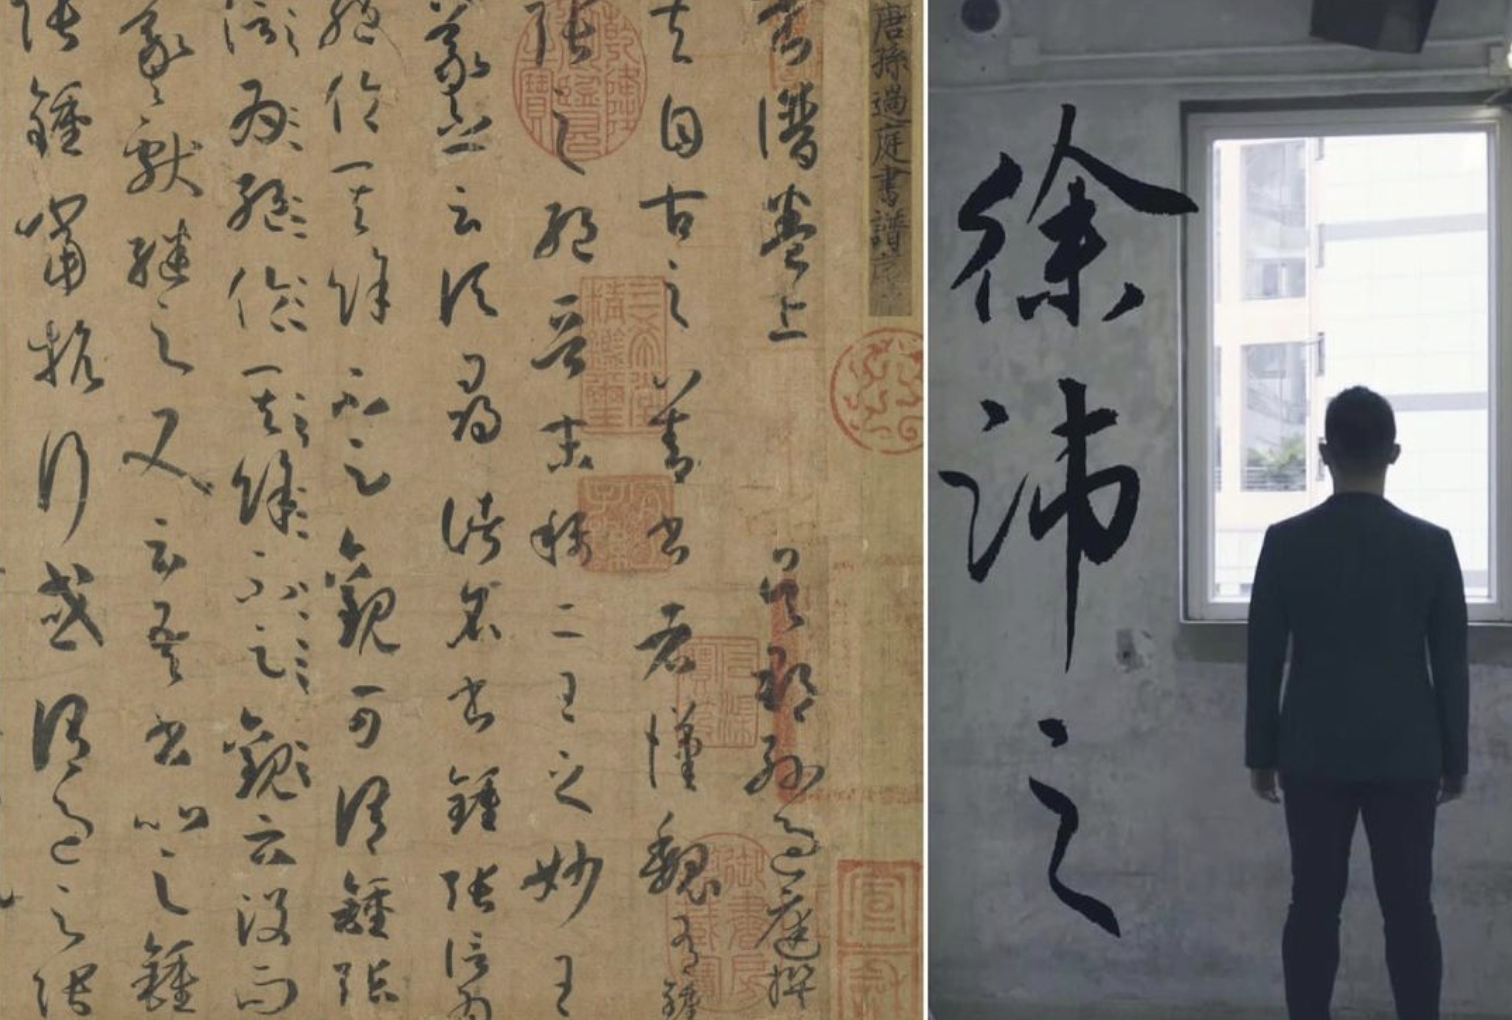 唐孫過庭書譜序
書譜卷上 吳郡孫過庭撰
夫自古之善書者漢魏有鍾
張之絕晉末稱二王之妙王
羲之云頃尋諸名書鍾張信為
絕倫其餘不足觀可謂鍾張
信為絕倫其餘不足觀云沒而
羲獻繼之又云吾書比之鍾
張鍾當抗行或謂過之張
三希堂精鑑璽
宜子孫
宣和
徐沛之